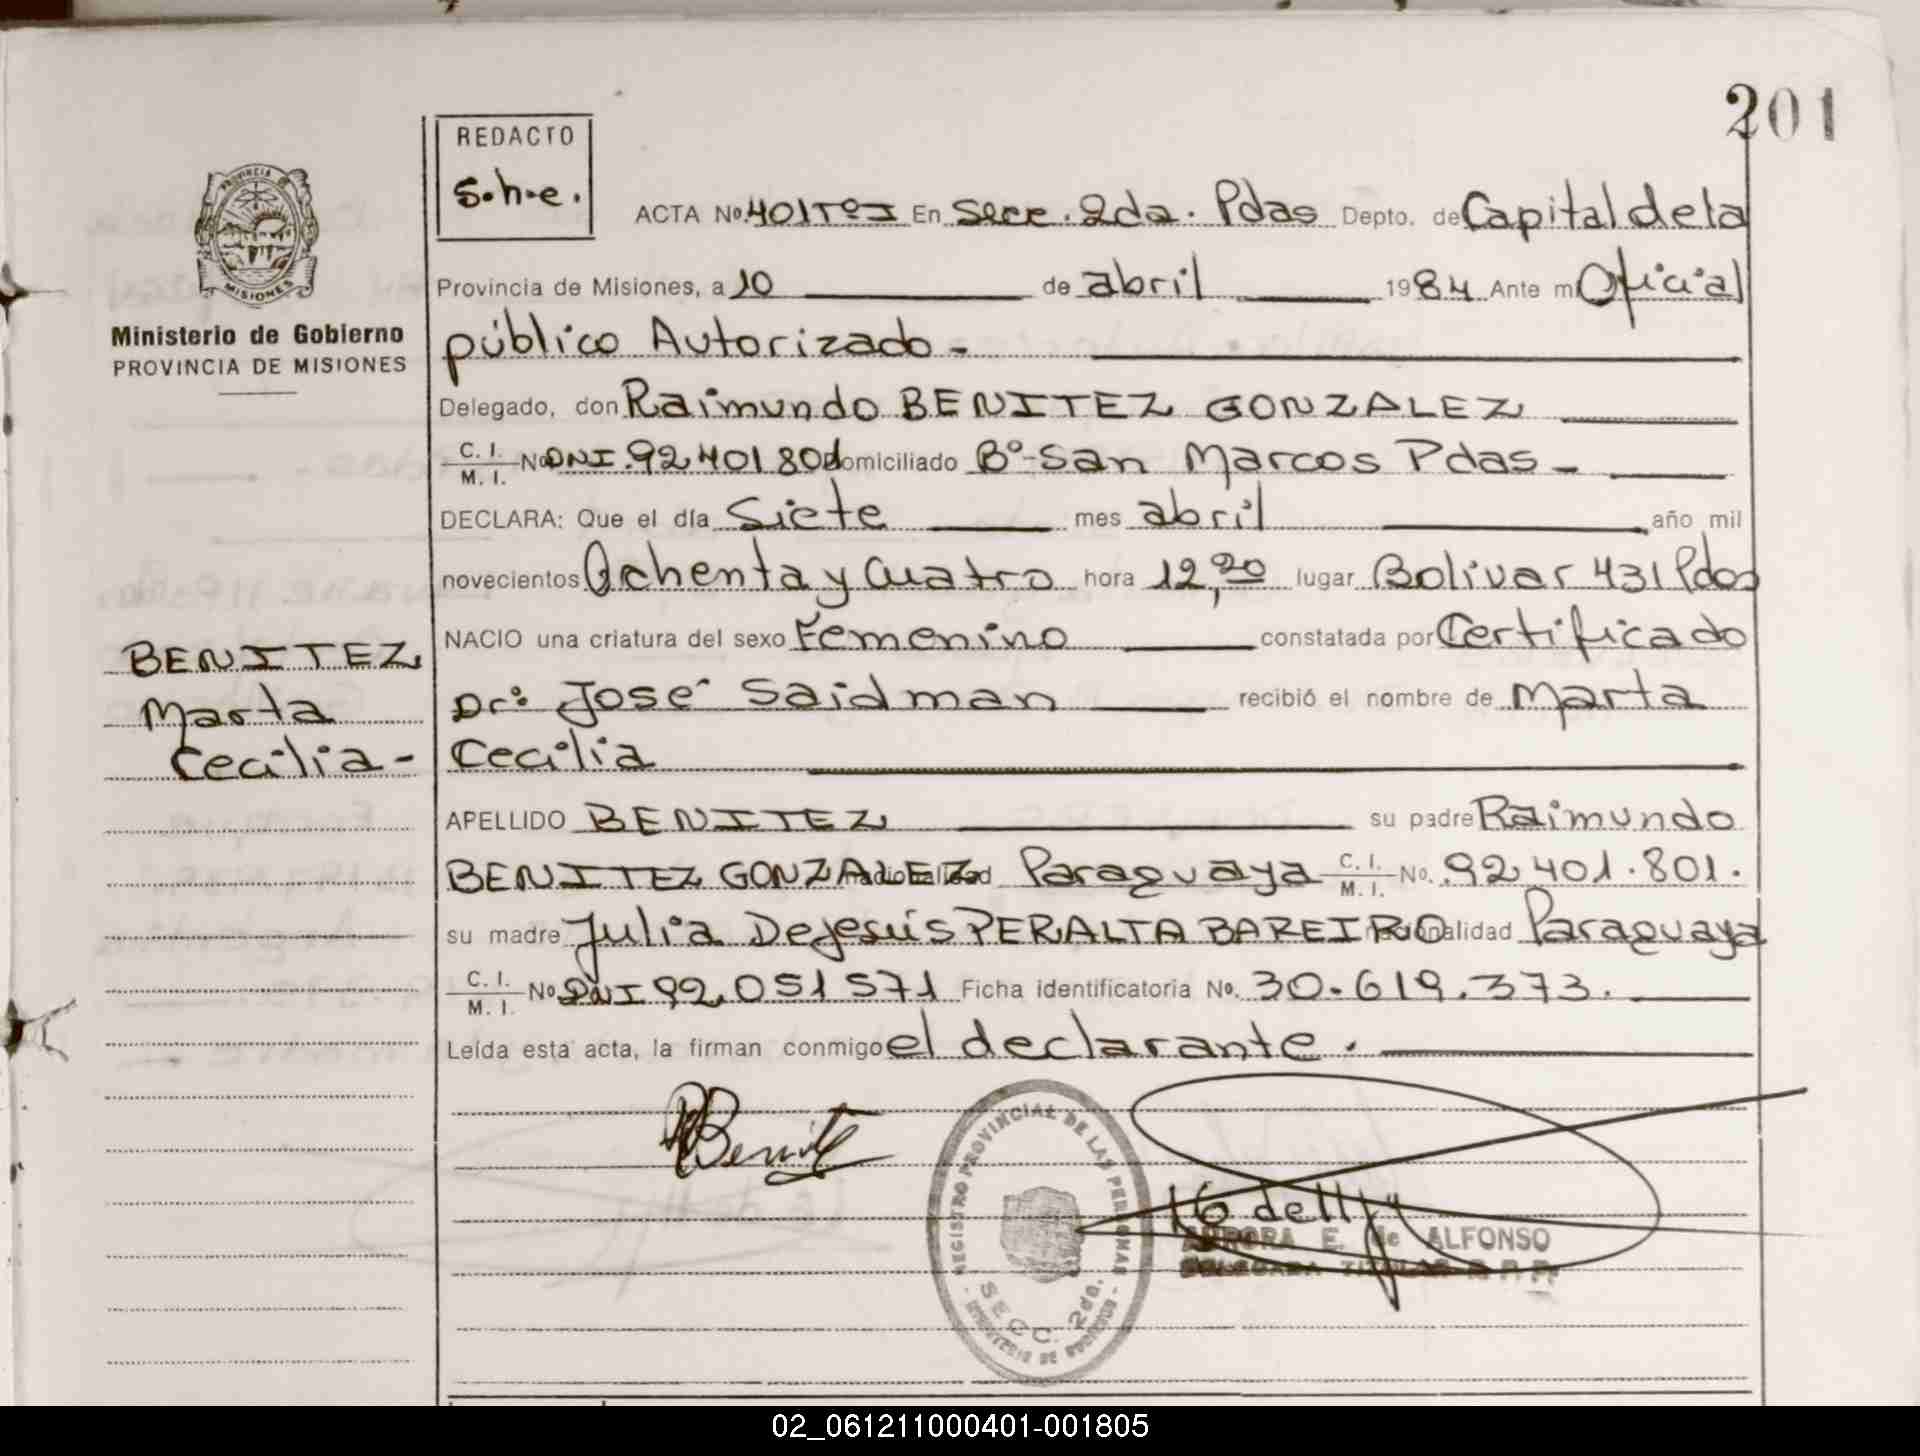 201
REDACTO
S.h.e.
PROVINCIA DE
MISIONES
Ministerio de Gobierno
PROVINCIA DE MISIONES
ACTA No. 401 Tº I En Secc. 2da. Pdas Depto. de Capital de la
Provincia de Misiones, a 10 de abril 1984 Ante mi Oficial
público Autorizado -
Delegado, don Raimundo BENITEZ GONZALEZ
C. I.
M. I. No DNI. 92 401 801 domiciliado Bº San Marcos Pdas -
DECLARA: Que el día Siete mes abril año mil
novecientos Ochenta y Cuatro hora 12,20 lugar Bolivar 431 Pdas
NACIO una criatura del sexo Femenino constatada por Certificado
Dr: José Saidman recibió el nombre de Marta
Cecilia
BENITEZ
Marta
Cecilia -
APELLIDO BENITEZ su padre Raimundo
BENITEZ GONZALEZ nacionalidad Paraguaya C. I. M. I. No. 92 401.801.
su madre Julia De Jesús PERALTA BAREIRO nacionalidad Paraguaya
C. I.
M. I. No DNI 92.051 571 Ficha identificatoria No. 30.619.373.
Leída esta acta, la firman conmigo el declarante.
RBenit
REGISTRO PROVINCIAL DE LAS PERSONAS
SECC. 2da.
MINISTERIO DE GOBIERNO
AURORA E. de ALFONSO
DELEGADA TITULAR R. P. P.
02_061211000401-001805